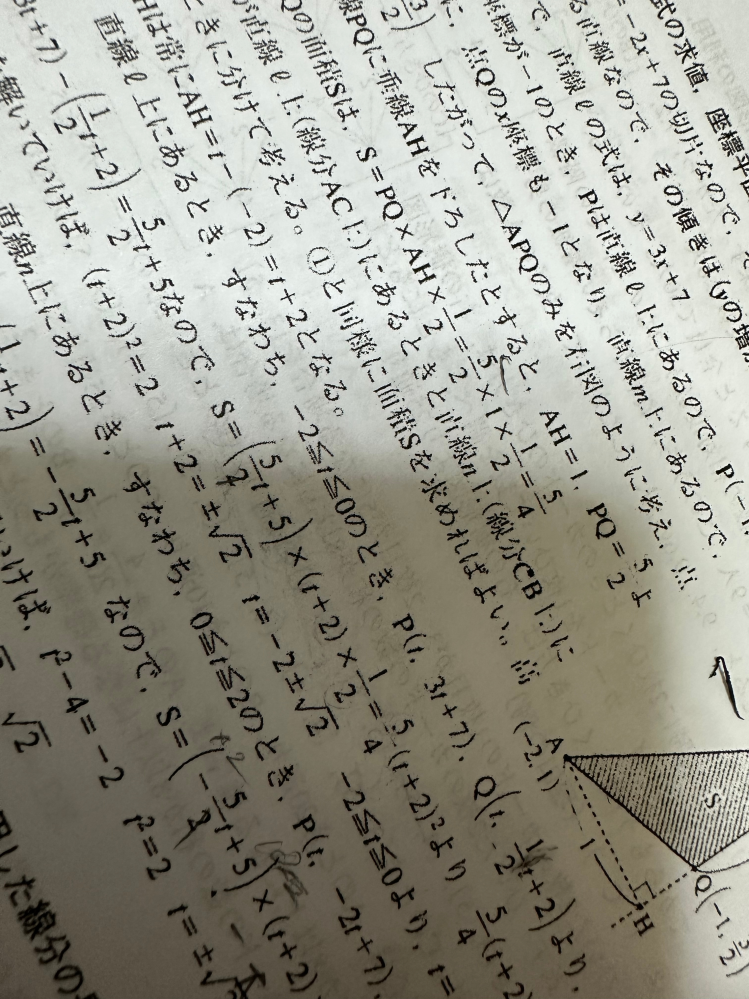 式の求値，座標平
=－2x＋7の切片なので，そ
る直線なので，その傾きは(yの増
で，直線ℓの式は，y＝3x＋7
座標が－1のとき，Pは直線ℓ上にあるので，P(－1
に，点Qのx座標も－1となり，直線m上にあるので，
したがって，△APQのみを右図のように考え，点
線PQに垂線AHを下ろしたとすると，AH＝1，PQ＝5/2よ
Qの面積Sは，S＝PQ×AH×1/2＝5/2×1×1/2＝5/4
が直線ℓ上(線分AC上)にあるときと直線n上(線分CB上)に
ときに分けて考える。(1)と同様に面積Sを求めればよい。点
Hは常にAH＝t－(－2)＝t＋2となる。
直線ℓ上にあるとき，すなわち，－2≦t≦0のとき，P(t, 3t＋7)，Q(t, 1/2t＋2)より，
3t＋7)－(1/2t＋2)＝5/2t＋5なので，S＝(5/2t＋5)×(t＋2)×1/2＝5/4(t＋2)²より 5/4(t＋2)
解いていけば，(t＋2)²＝2 t＋2＝±√2 t＝－2±√2 －2≦t≦0より，t＝
直線n上にあるとき，すなわち，0≦t≦2のとき，P(t, －2t＋7)，
(1/2t＋2)＝－5/2t＋5 なので，S＝(－5/2t＋5)×(t＋2)
いけば，t²－4＝－2 t²＝2 t＝±√
√2
した線分の
A
(－2, 1)
S
1
H
Q(－1, 3/2)